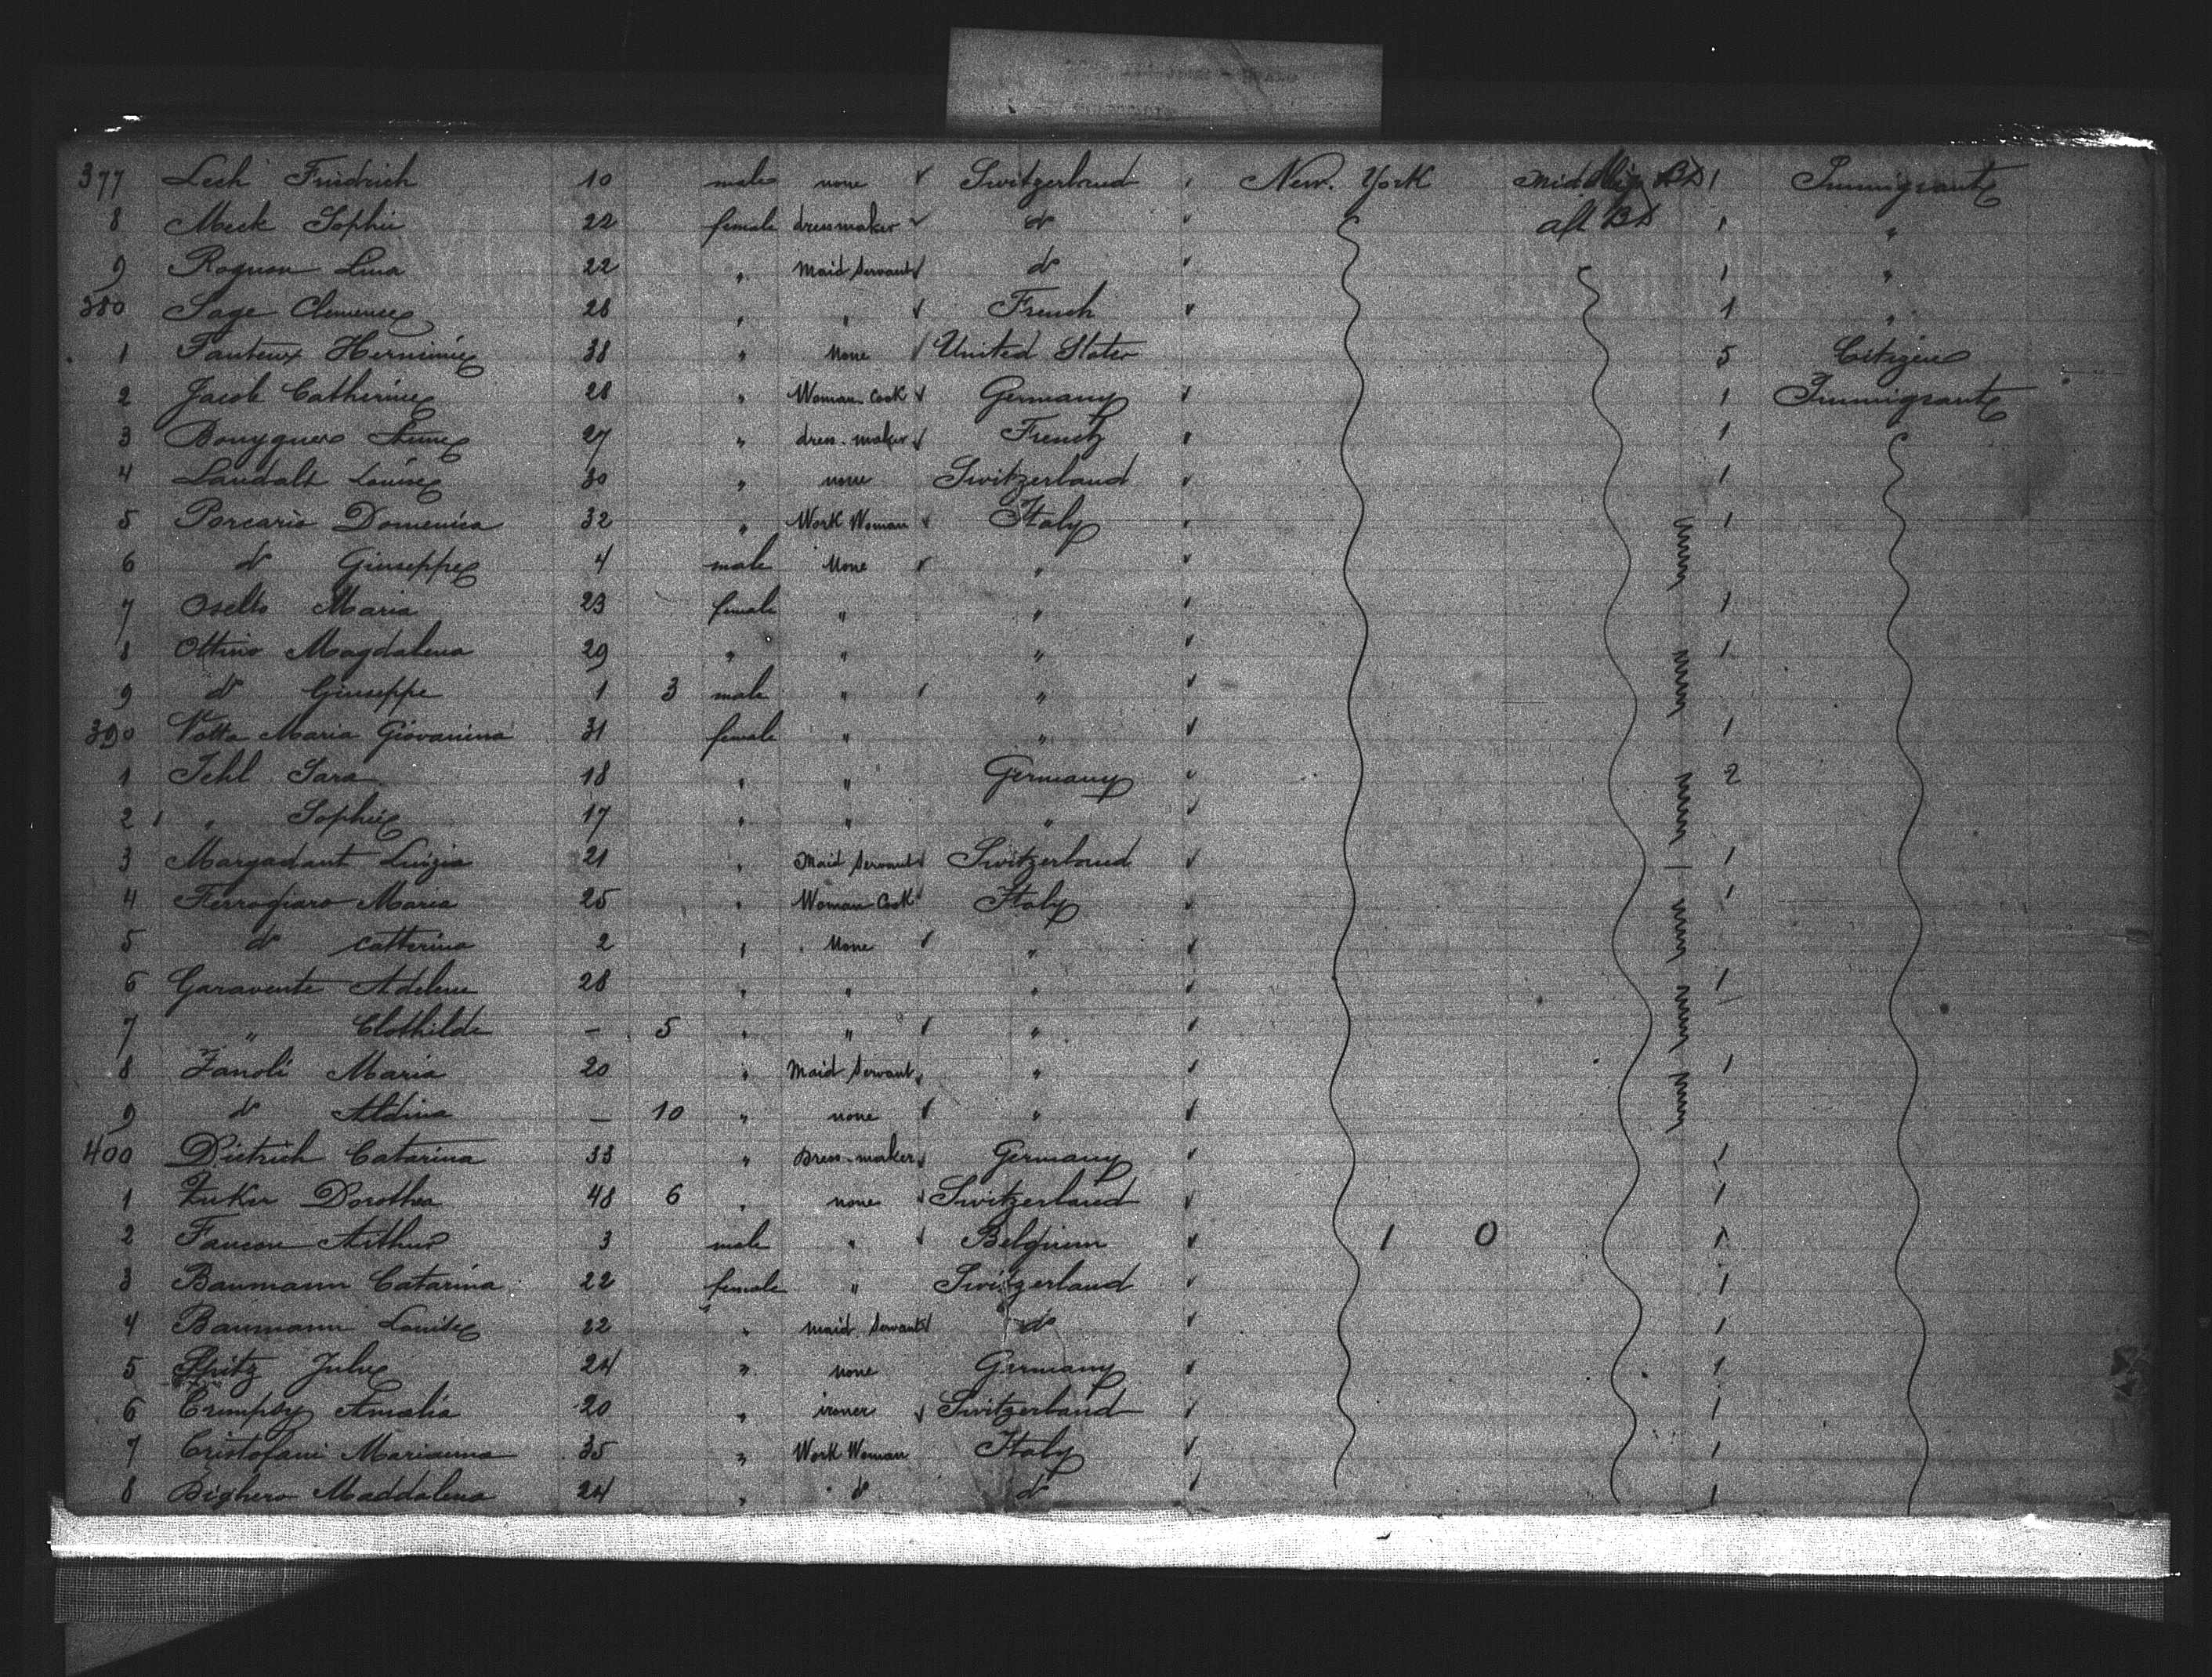 377 Lesh Fridrich 10 male none Switzerland New. York middship 1 Immigrant
8 Meck Sophie 22 female dressmaker do aft 1 "
9 Rognon Lina 22 " Maid Servant do 1 "
380 Sage Clemence 28 " " French 1 "
1 Herminie 38 " None United States 5 Citizen
2 Jacob Catherine 28 " Woman Cook Germany 1 Immigrant
3 27 " dress-maker French 1
4 Landalt Louise 30 " none Switzerland 1
5 Porcario Domenica 32 " Work Woman Italy 1
6 do Giuseppe 4 male None "
7 Osello Maria 23 female " " 1
8 Ottino Magdalena 29 " " " 1
9 do Giuseppe 1 3 male " "
390 Votta Maria Giovanina 31 female " " 1
1 Jehl Sara 18 " " Germany 2
2 " Sophie 17 " " "
3 Margadant Luizia 21 " Maid Servant Switzerland 1
4 Ferrogiaro Maria 25 " Woman Cook Italy 1
5 do Catterina 2 " None "
6 Garavente Adeline 28 " " " 1
7 " Clothilde - 5 " " "
8 Zanoli Maria 20 " Maid Servant " 1
9 do Aldina - 10 " none "
400 Dietrich Catarina 33 " Dress-maker Germany 1
1 Dorothea 48 6 " none Switzerland 1
2 Faucon Arthur 3 male " Belgium 1 0 1
3 Baumann Catarina 22 female " Switzerland 1
4 Baumann Louise 22 " maid Servant do 1
5 Julie 24 " none Germany 1
6 Amalia 20 " ironer Switzerland 1
7 Cristofani Marianna 35 " Work Woman Italy 1
8 Bighero Maddalena 24 " do do 1